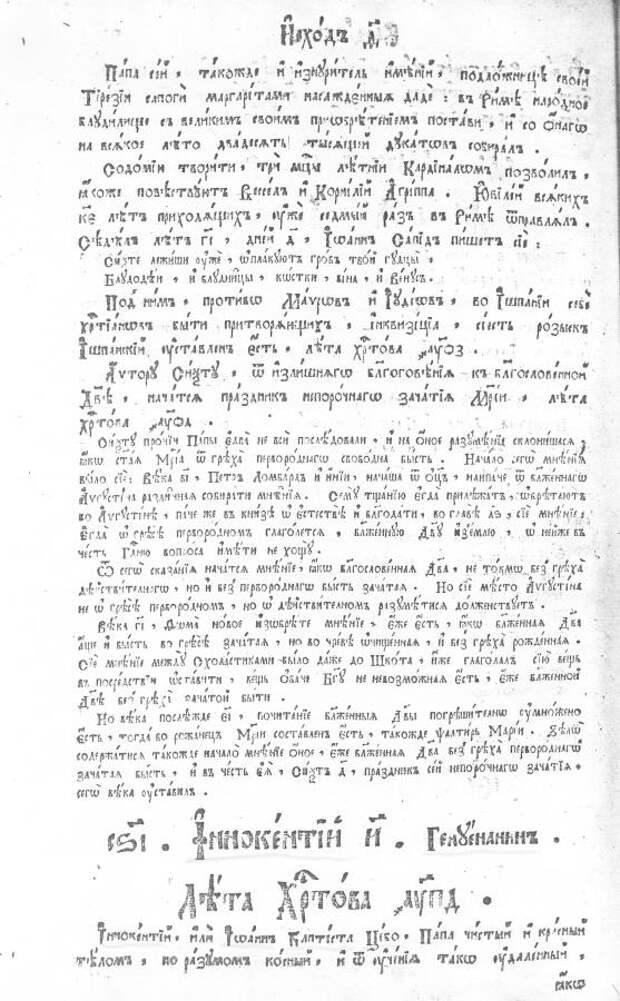 Исходъ д҃і
Папа сей, такожде и изнуритель имѣній, подложницѣ своей
Тірезіи сапоги маргарітами насажденныя даде: въ Римѣ народное
блудилище съ великимъ своимъ приѡбрѣтеніемъ постави, и со ѻнагѡ
на всякое лѣто двадесять тысящей дукатѡвъ собиралъ.
Содомїи творити, три мц҃ы лѣтнїи Кардіналомъ позволилъ,
ꙗкоже повѣствуютъ Весселъ и Корнилїй Агріппа. Юбїлей всякихъ
к҃е лѣтъ приходящихъ, уже седмый разъ въ Римѣ ѿправлялъ.
Сѣдѣлъ лѣтъ г҃і, дней д҃, Іѡаннъ Сапідъ пишетъ сїе:
Сиѯте лежиши уже, ѡплакуютъ гробъ твой гудцы,
Блудодѣи, и блудницы, кѡстки, віна, и Венусъ.
Под нимъ, противѡ Маурѡвъ и Іудеѡвъ, во Ішпанїи себе
хр҃тїанѡвъ быти притворяющихъ, інквизіцїа, сїесть розыскъ
Ішпанскїй уставленъ есть, лѣта хр҃това
Аѵтору Сиѯту, ѿ излишнягѡ бл҃гоговѣнїя къ бл҃гословенной
Дв҃ѣ, начатся праздникъ непорочнагѡ зачатїя Мр҃їи, лѣта
хр҃това
Сиѯту прочїи Папы едва не вси послѣдовали, и на ѻное разумѣнїе склонишася,
ꙗкѡ ст҃ая Мр҃їа ѿ грѣха первороднагѡ свободна бысть. Начало сегѡ мнѣнїя
было сїе: Вѣка в҃і, Петръ Ломбардъ и инїи, начаша ѿ оц҃ъ, наипаче ѿ блаженнагѡ
Аѵгустїна различная собирати мнѣнїя. Сему тщанїю егда прилежатъ, ѡбрѣтаютъ
во Аѵгустінѣ, паче же въ книзѣ ѡ естествѣ и бл҃годати, во главѣ л҃ѕ, сїе мнѣнїе,
Егда ѡ грѣсѣ первородномъ глаголется, бл҃женную Дв҃у изъемлю, ѡ нейже въ
честь Гд҃ню вопроса имѣти не хощу.
Ѿ сегѡ сказанїя начатся мнѣнїе, ꙗкѡ бл҃гословенная Дв҃а, не токмѡ безъ грѣха
дѣйствителнагѡ, но и безъ первороднагѡ бысть зачатая. Но сїе мѣсто Аѵгустіна
не ѡ грѣсѣ первородномъ, но ѡ дѣйствителномъ разумѣтися долженствуетъ.
Вѣка г҃і, Ѳѡма новое изѡбрѣте мнѣнїе, еже есть, ꙗкѡ бл҃женная Дв҃а
аще и бысть во грѣсѣ зачатая, но во чревѣ ѡчищенная, и безъ грѣха рожденная.
Сїе мнѣнїе между Схоластїками было даже до Шкота, иже глаголалъ сїю вещь
въ посредствїи ѡставити, вещь ѻбаче Бг҃у не невозможная есть, еже бл҃женной
Дв҃ѣ безъ грѣха зачатой быти.
Но вѣка послѣжде е҃і, почитанїе бл҃женныя Дв҃ы погрѣшителнѡ сумножено
есть, тогда бо рожанецъ Мр҃їи составленъ есть, такожде Ѱалтирь Марїи. Ѕѣлѡ
содержатися такожде начало мнѣнїе ѻное, еже бл҃женная Дв҃а безъ грѣха первороднагѡ
зачатая бысть, и въ честь ея, Сиѯтъ д҃, праздникъ сей непорочнагѡ зачатїя
сегѡ вѣка уставилъ.
Іннокентїй и҃. Генуенанинъ.
Лѣта Хр҃това ҂аупд.
Іннокентїй, или Іѡаннъ Баптіста Цебо, Папа чистый и красный
тѣломъ, но разумомъ косный, и ѿ ученїя такѡ удаленный,
ꙗкѡ